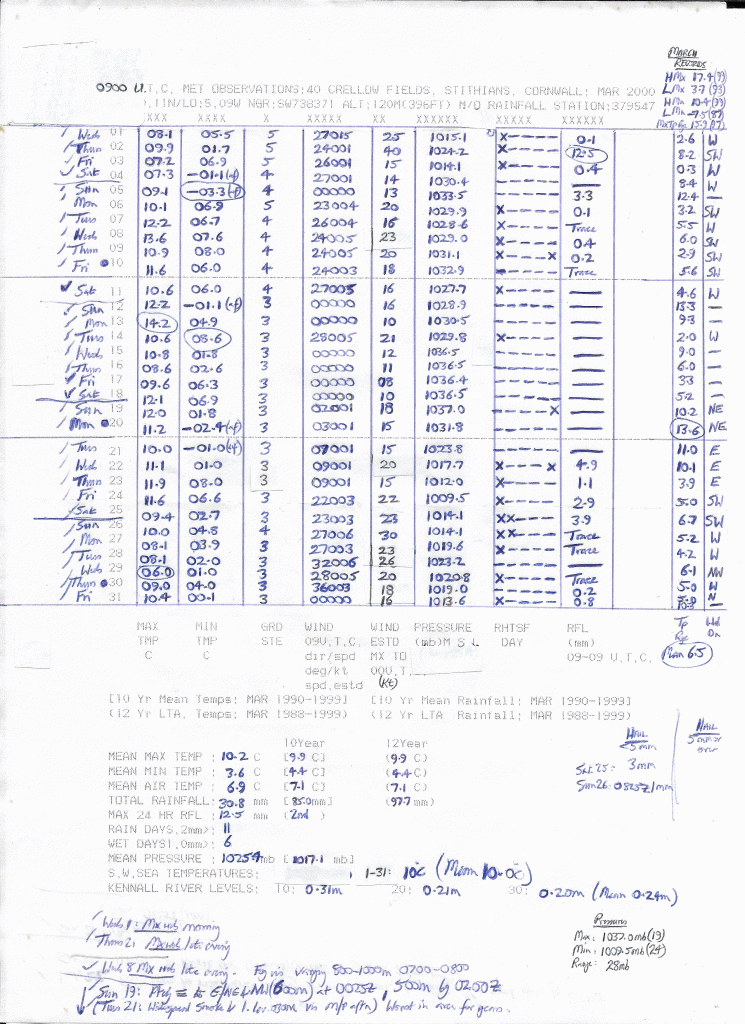 MARCH
RECORDS
HMx 17.4(99)
LMx 3.7(93)
HMn 10.4(99)
LMn -7.5(87)
0900 U.T.C. MET OBSERVATIONS:40 CRELLOW FIELDS, STITHIANS, CORNWALL: MAR 2000
.11N/LO:5.09W NGR:SW738371 ALT:120M(396FT) M/O RAINFALL STATION:379547
XXX XXX X XXXXX XX XXXXXX XXXXX XXXXXX
Wed 01 08.1 05.5 5 27015 25 1015.1 X----- 0.1 2.6 W
Thurs 02 09.9 01.7 5 24001 40 1024.2 X----- 12.5 8.2 SW
Fri 03 07.2 06.9 5 26001 15 1014.1 X----- 0.4 0.3 W
Sat 04 07.3 -01.1(-f) 4 27001 14 1030.4 ------ — 8.4 W
Sun 05 09.1 -03.3(-f) 4 00000 13 1033.5 ------ 3.3 12.4 —
Mon 06 10.1 06.9 5 23004 20 1029.9 X----- 0.1 3.2 SW
Tues 07 12.2 06.7 4 26004 16 1028.6 X----- Trace 5.5 W
Wed 08 13.6 07.6 4 24005 23 1029.0 X----- 0.4 6.0 SW
Thurs 09 10.9 08.0 4 24005 20 1031.1 X----X 0.2 2.9 SW
Fri 10 11.6 06.0 4 24003 18 1032.9 X----- Trace 5.6 SW
Sat 11 10.6 06.0 4 27005 16 1027.7 X----- — 4.6 W
Sun 12 12.2 -01.1(-f) 3 00000 16 1028.9 ------ — 13.3 —
Mon 13 14.2 04.9 3 00000 10 1030.5 ------ — 9.3 —
Tues 14 10.6 08.6 3 28005 21 1029.8 X----- — 2.0 W
Wed 15 10.8 01.8 3 00000 12 1036.5 ------ — 9.0 —
Thurs 16 08.6 02.6 3 00000 11 1036.5 ------ — 6.0 —
Fri 17 09.6 06.3 3 00000 08 1036.4 ------ — 3.3 —
Sat 18 12.1 06.9 3 00000 10 1036.5 ------ — 5.2 —
Sun 19 12.0 01.8 3 02001 18 1037.0 -----X — 10.2 NE
Mon 20 11.2 -02.4(-f) 3 03001 15 1031.8 ------ — 13.6 NE
Tues 21 10.0 -01.0(-f) 3 07001 15 1023.8 ------ — 11.0 E
Wed 22 11.1 01.0 3 09001 20 1017.7 X----X 4.9 10.1 E
Thurs 23 11.9 08.0 3 09001 15 1012.0 X----- 1.1 3.9 E
Fri 24 11.6 06.6 3 22003 22 1009.5 X----- 2.9 5.0 SW
Sat 25 09.4 02.7 3 23003 23 1014.1 XX---- 3.9 6.7 SW
Sun 26 10.0 04.8 4 27006 30 1014.1 XX---- Trace 5.2 W
Mon 27 08.1 03.9 3 27003 23 1019.6 X----- Trace 4.2 W
Tues 28 08.1 02.0 3 32006 26 1023.2 ------ — 6.1 NW
Wed 29 06.0 01.0 3 28005 20 1020.8 X----- Trace 5.0 W
Thurs 30 09.0 04.0 3 36003 18 1019.0 X----- 0.2 5.0 N
Fri 31 10.4 00.1 3 00000 16 1013.6 X----- 0.8 10.3 —
MAX MIN GRD WIND WIND PRESSURE RHTSF RFL
TMP TMP STE 09U.T.C. ESTD (mb)M S L DAY (mm)
C C dir/spd MX TO 09-09 U.T.C. Mean 6.5
deg/kt 00U.T.
spd.estd (kt)
[10 Yr Mean Temps: MAR 1990-1999] [10 Yr Mean Rainfall: MAR 1990-1999]
(12 Yr LTA. Temps: MAR 1988-1999) (12 Yr LTA Rainfall: MAR 1988-1999)
10Year 12Year
MEAN MAX TEMP : 10.2 C [9.9 C] (9.9 C)
MEAN MIN TEMP : 3.6 C [4.4 C] (4.4 C)
MEAN AIR TEMP : 6.9 C [7.1 C] (7.1 C)
TOTAL RAINFALL: 30.8 mm [85.0mm] (97.7 mm)
MAX 24 HR RFL : 12.5 mm (2nd)
RAIN DAYS.2mm>: 11
WET DAYS1.0mm>: 6
MEAN PRESSURE : 1025.4mb [1017.1 mb]
S.W.SEA TEMPERATURES: 1-31: 10°C (Mean 10.0°C)
KENNALL RIVER LEVELS: 10: 0.31m 20: 0.21m 30: 0.20m (Mean 0.24m)
HAIL <5mm
HAIL 5mm or over
Sat 25: 3mm
Sun 26: 0825Z/1mm
Wed 1: Mx wd morning
Thurs 2: Mx wd late evening
Wed 8 Mx wd late evening. Fog vis varying 800-1000m 0700-0800
Pressures
Max: 1037.0mb(19)
Min: 1009.5mb(24)
Range: 28mb